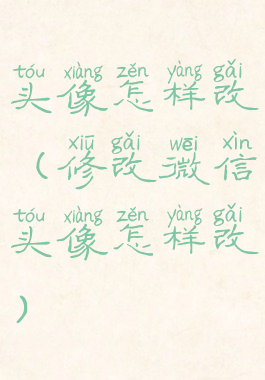 tóu xiàng zěn yàng gǎi
头像怎样改
xiū gǎi wēi xìn
(修改微信
tóu xiàng zěn yàng gǎi
头像怎样改
)